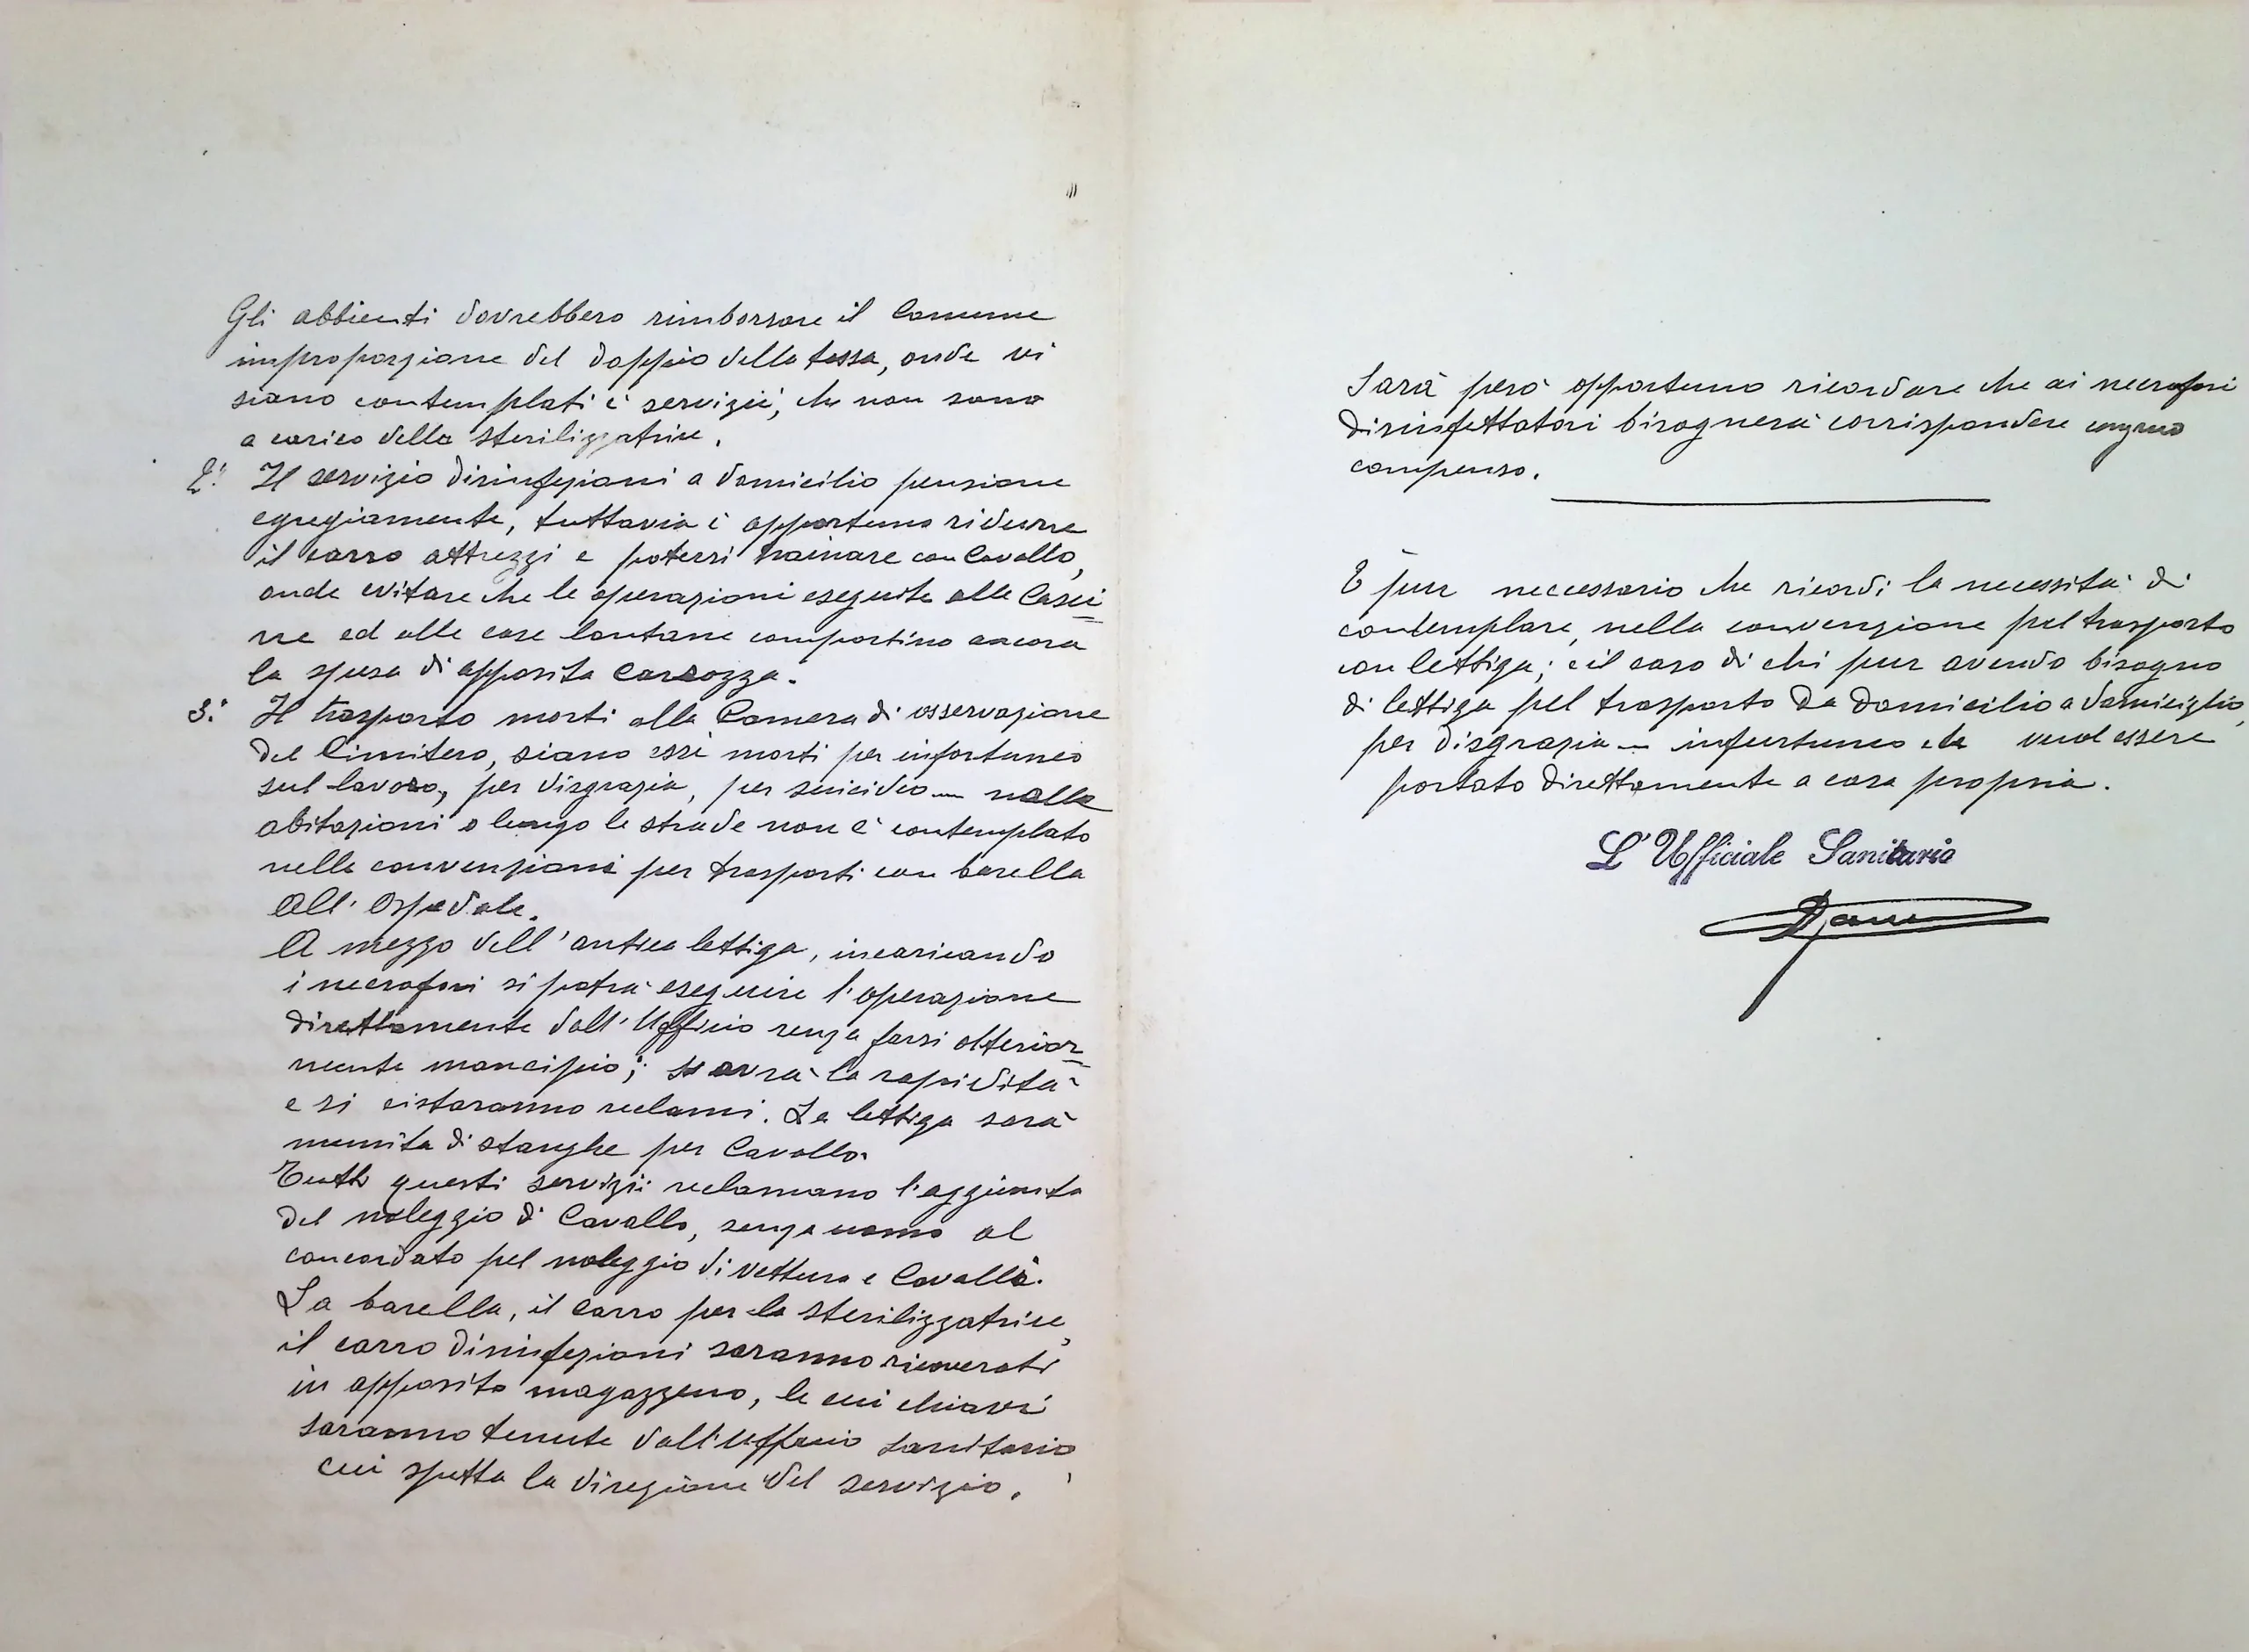 Gli abbienti dovrebbero rimborsare il Comune
inproporzione del doppio della tassa, onde vi
siano contemplati i servizii, che non sono
a carico della sterilizzatrice.
2.° Il servizio disinfezioni a domicilio funzione
egregiamente, tuttavia è opportuno ridurre
il carro attrezzi e potersi trainare con Cavallo,
onde evitare che le operazioni eseguite alle Casci=
ne ed alle case lontane comportino ancora
la spesa di apposita carrozza.
3.° Il trasporto morti alla Camera di osservazione
del Cimitero, siano essi morti per infortunio
sul lavoro, per disgrazia, per suicidio — nelle
abitazioni o lungo le strade non è contemplato
nelle convenzioni per trasporti con barella
all'Ospedale.
A mezzo dell'antica lettiga, incaricando
i necrofori si potrà eseguire l'operazione
direttamente dall'Ufficio senza farsi olterior=
mente mancipio; si avrà la rapidità
e si eviteranno reclami. La lettiga sarà
munita di stanghe per Cavallo.
Tutti questi servizii reclamano l'aggiunta
del noleggio di Cavallo, senza uomo al
concordato pel noleggio di vettura e Cavalli.
La barella, il carro per la sterilizzatrice,
il carro disinfezioni saranno ricoverati
in apposito magazzeno, le cui chiavi
saranno tenute dall'Ufficio sanitario,
cui spetta la direzione del servizio.
Sarà però opportuno ricordare che ai necrofori
disinfettatori bisognerà corrispondere congruo
compenso.
È pur neccessario che ricordi la necessità di
contemplare, nella convenzione pel trasporto
con lettiga; il caso di chi pur avendo bisogno
di lettiga pel trasporto da domicilio a domiciglio,
per disgrazia — infortunio che vuol essere
portato direttamente a casa propria.
L'Ufficiale Sanitario